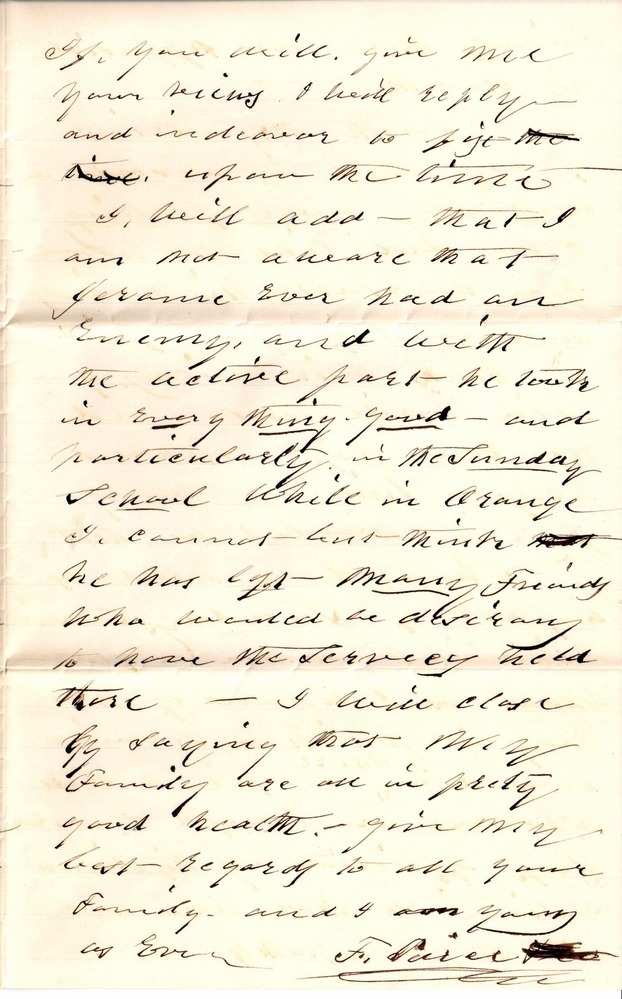 If, you will. give me
your views I will reply—
and indeavor to fix the
time. upon the time
I, will add — that I
am not aware that
Jerome Ever had an
Enemy, and with
the active part he took
in every thing good — and
particularly, in the Sunday
School While in Orange
I. cannot but think that
he has left — many Friends
Who would be desirous
to have the Services held
there — I will close
By saying that My
Family are all in pretty
good health. — give My
best regards to all your
Family. and I am yours
as Ever F. Peirce